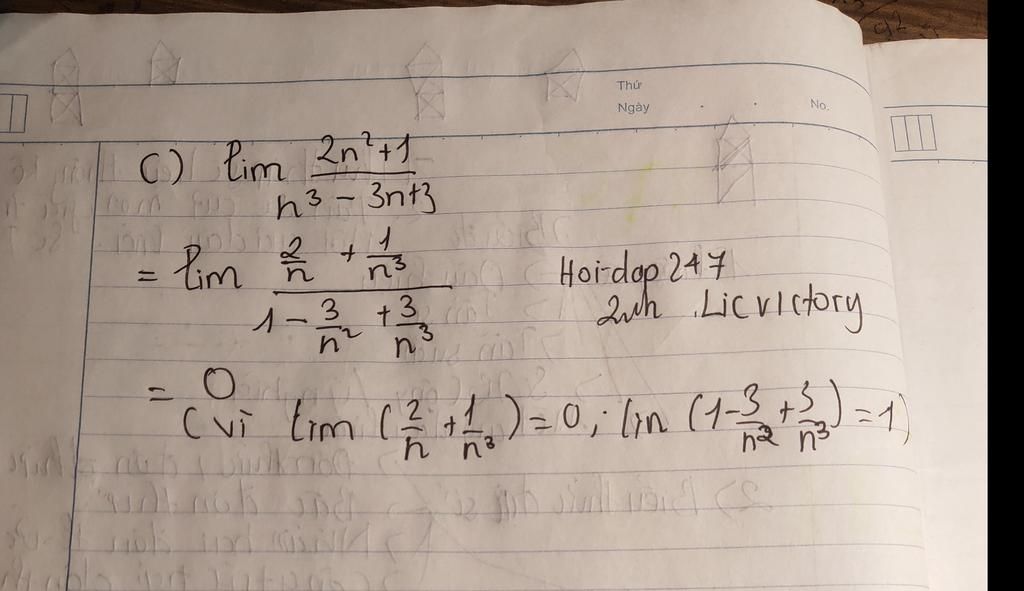 Thứ
Ngày . . No.
C) lim \frac{2n^2+1}{n^3-3n+3}
= lim \frac{\frac{2}{n}+\frac{1}{n^3}}{1-\frac{3}{n^2}+\frac{3}{n^3}}
Hoi-dap 247
LicVIctory
= 0
(vì lim (\frac{2}{n}+\frac{1}{n^3})=0; lin (1-\frac{3}{n^2}+\frac{3}{n^3})=1)